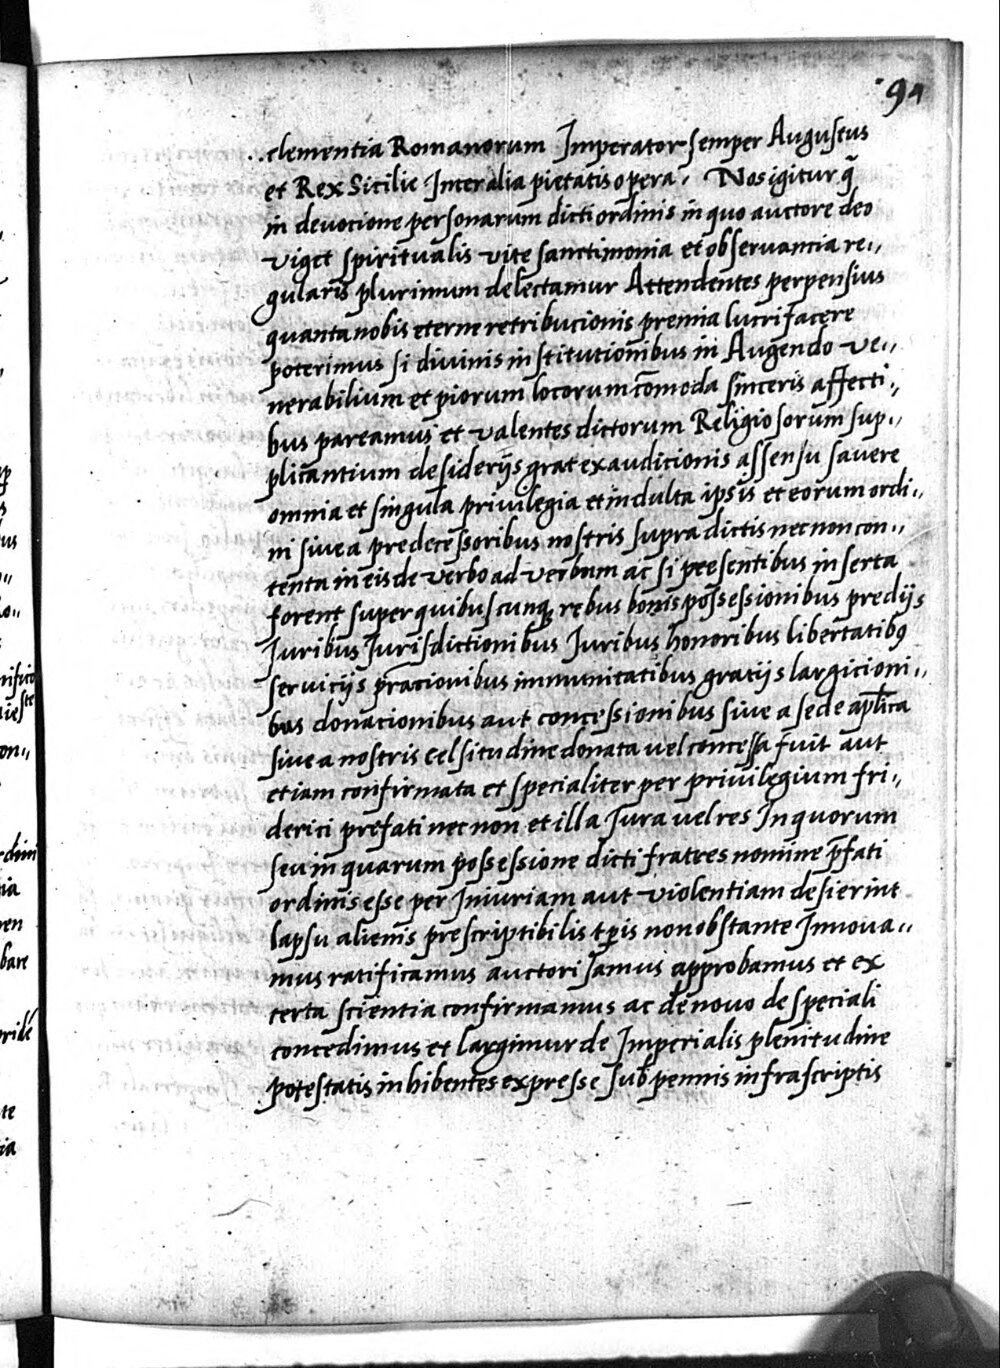 94
..clementia Romanorum Imperator semper Augustus
et Rex Sicilie Inter alia pietatis opera. Nos igitur q̃
in devocione personarum dicti ordinis in quo auctore deo
viget spiritualis vite sanctimonia et observancia re..
gularis plurimum delectamur Attendentes perpensius
quanta nobis eterne retribucionis premia lucrifacere
poterimus si divinis institutionibus in Augendo ve..
nerabilium et piorum locorum comoda sinceris affecti..
bus pareamus et valentes dictorum Religiosorum sup..
plicantium desiderijs grat exaudicionis assensu favere
omnia et singula privilegia et indulta ipsis et eorum ordi..
ni sive a predecessoribus nostris supra dictis nec non con..
tenta in eis de verbo ad verbum ac si presentibus inserta
forent super quibuscunq rebus bonis possessionibus predijs
Juribus Jurisdictionibus Juribus honoribus libertatibꝯ
servicijs p̃racionibus immunitatibus gratijs largicioni..
bus donationibus aut concessionibus sive a sede aplica
sive a nostris celsitudine donata vel concessa fuit aut
etiam confirmata et specialiter per privilegium fri..
derici prefati nec non et illa Jura vel res In quorum
seu in quarum possessione dicti fratres nomine p̃fati
ordinis esse per Iniuriam aut violentiam desierint
lapsu alienis prescriptibilis tp̃is non obstante Innova..
mus ratificamus auctorisamus approbamus et ex
certa scientia confirmamus ac de novo de speciali
concedimus et largimur de Imperialis plenitudine
potestatis inhibentes expresse sub pennis infrascriptis